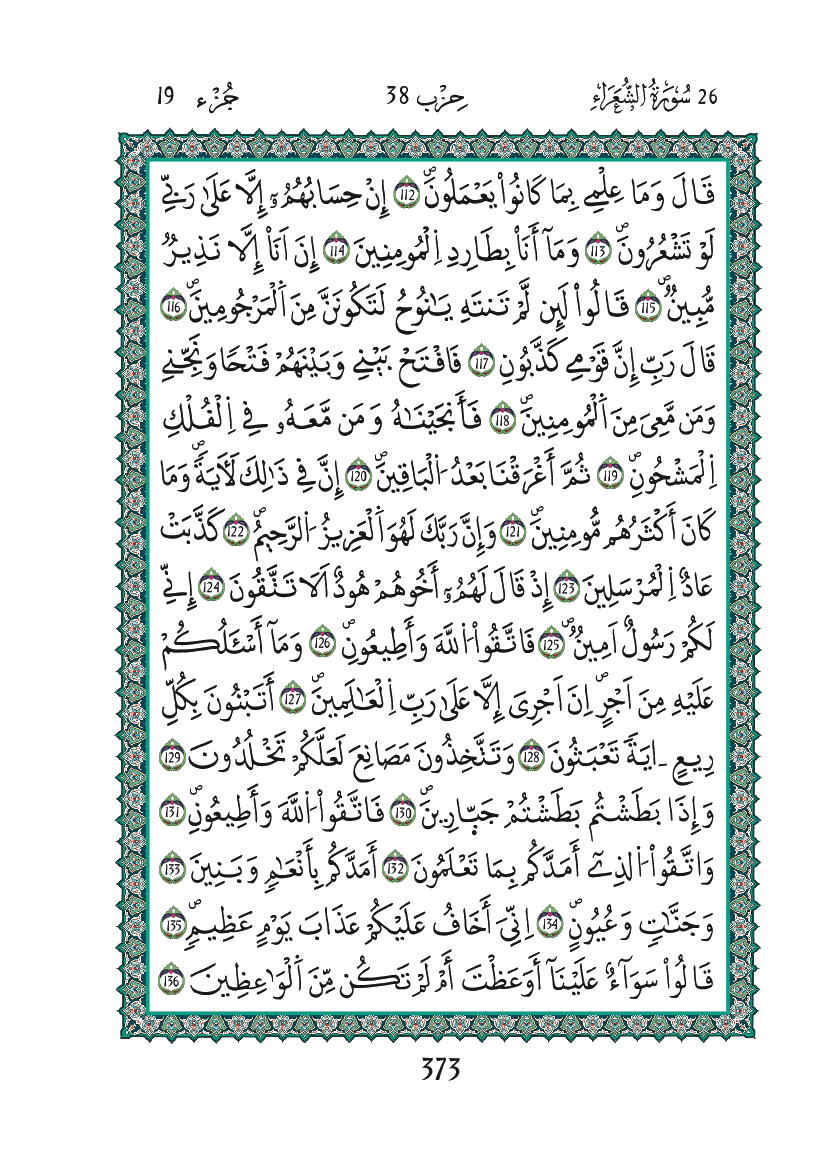 26 سُورَةُ الشُّعَرَاءِ حِزْب 38 جُزْء 19
قَالَ وَمَا عِلْمِے بِمَا كَانُواْ يَعْمَلُونَۖ 112 إِنْ حِسَابُهُمُۥٓ إِلَّا عَلَىٰ رَبِّے
لَوْ تَشْعُرُونَۖ 113 وَمَآ أَنَا۠ بِطَارِدِ اِ۬لْمُومِنِينَ 114 إِنَ اَنَا۠ إِلَّا نَذِيرٞ
مُّبِينٞۖ 115 قَالُواْ لَئِن لَّمْ تَنتَهِ يَٰنُوحُ لَتَكُونَنَّ مِنَ اَ۬لْمَرْجُومِينَۖ 116
قَالَ رَبِّ إِنَّ قَوْمِے كَذَّبُونِ 117 فَافْتَحْ بَيْنِے وَبَيْنَهُمْ فَتْحٗا وَنَجِّنِے
وَمَن مَّعِيَ مِنَ اَ۬لْمُومِنِينَۖ 118 فَأَنجَيْنَٰهُ وَمَن مَّعَهُۥ فِے اِ۬لْفُلْكِ
اِ۬لْمَشْحُونِۖ 119 ثُمَّ أَغْرَقْنَا بَعْدُ اَ۬لْبَاقِينَۖ 120 إِنَّ فِے ذَٰلِكَ لَأٓيَةٗۖ وَمَا
كَانَ أَكْثَرُهُم مُّومِنِينَۖ 121 وَإِنَّ رَبَّكَ لَهُوَ اَ۬لْعَزِيزُ اُ۬لرَّحِيمُۖ 122 كَذَّبَتْ
عَادٌ اِ۬لْمُرْسَلِينَ 123 إِذْ قَالَ لَهُمُۥٓ أَخُوهُمْ هُودٌ اَلَا تَتَّقُونَ 124 إِنِّے
لَكُمْ رَسُولٌ اَمِينٞۖ 125 فَاتَّقُواْ اُ۬للَّهَ وَأَطِيعُونِۖ 126 وَمَآ أَسْـَٔلُكُمْ
عَلَيْهِ مِنَ اَجْرٍۖ اِنَ اَجْرِيَ إِلَّا عَلَىٰ رَبِّ اِ۬لْعَٰلَمِينَۖ 127 أَتَبْنُونَ بِكُلِّ
رِيعٍ ـ ايَةٗ تَعْبَثُونَ 128 وَتَتَّخِذُونَ مَصَانِعَ لَعَلَّكُمْ تَخْلُدُونَ 129
وَإِذَا بَطَشْتُم بَطَشْتُمْ جَبّ۪ارِينَۖ 130 فَاتَّقُواْ اُ۬للَّهَ وَأَطِيعُونِۖ 131
وَاتَّقُواْ اُ۬لذِےٓ أَمَدَّكُم بِمَا تَعْلَمُونَ 132 أَمَدَّكُم بِأَنْعَٰمٖ وَبَنِينَ 133
وَجَنَّٰتٖ وَعُيُونٍۖ 134 اِنِّيَ أَخَافُ عَلَيْكُمْ عَذَابَ يَوْمٍ عَظِيمٖۖ 135
قَالُواْ سَوَآءٌ عَلَيْنَآ أَوَعَظْتَ أَمْ لَمْ تَكُن مِّنَ اَ۬لْوَٰعِظِينَ 136
373